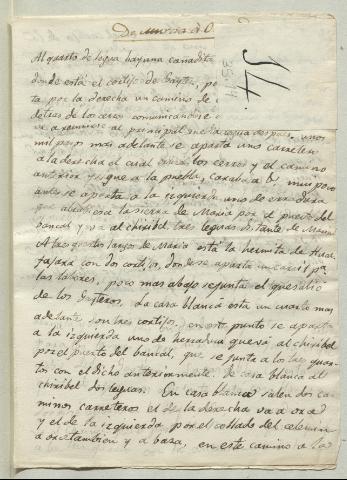 De Murcia á O
Al quarto de legua hay una cañadita
donde está el cortijo de
ta por la derecha un camino de
detras de los cerros comunicandose
va a reunirse al principal que la legua despues. unos
mil pasos mas adelante se aparta uno carretero
a la derecha el cual cruza los cerros y el camino
anterior y sigue a la puebla, caravaca &. muy poco
antes se aparta a la izquierda uno de erradura
que atrabiesa la sierra de Maria por el puerto del
bancal y va al chiribel tres leguas distante de Maria
A tres quartos largos de Maria está la hermita de
fajara con dos cortijos, donde se aparta un carril pa.
las labores, poco mas abajo se junta el que salio
de los Gazteros. La casa blanca esta un cuarto mas
adelante son tres cortijos. en este punto se aparta
a la izquierda uno de herradura que va al chiribel
por el puerto del bancal, que se junta a los tres quar-
tos con el dicho anteriormente. de casa blanca al
chiribel dos leguas. En casa blanca salen dos ca-
minos carreteros el de la derecha va a orce
y el de la izquierda por el collado del celemin
a orce tambien y a baza, en este camino a la
54.